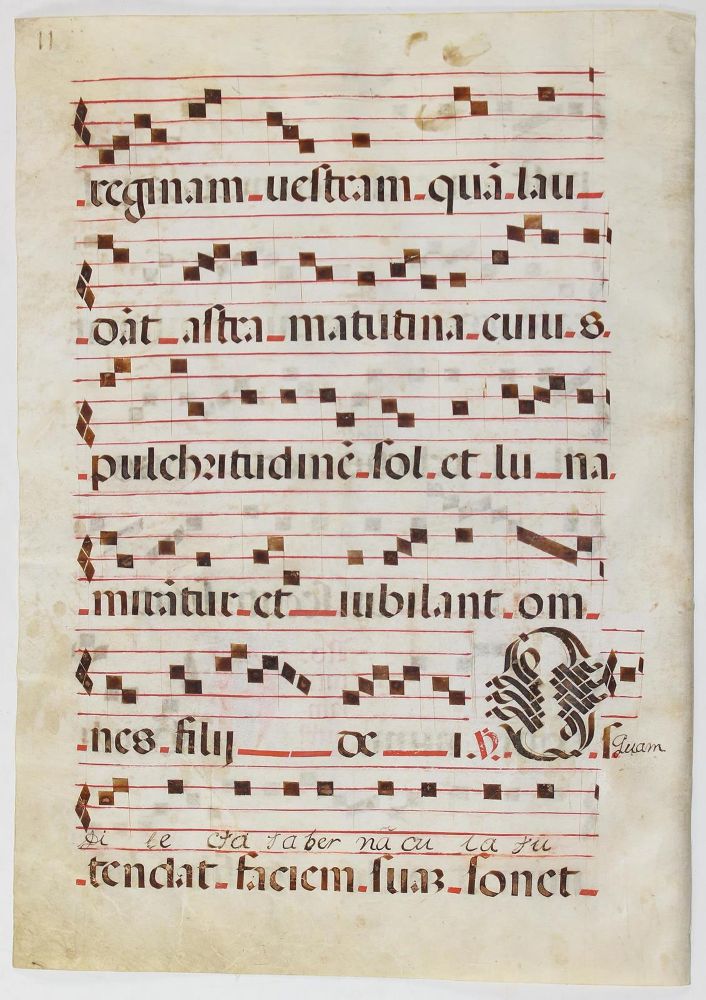 11
reginam uestram quā lau
dāt astra matutina cuiu s.
pulchritudinē sol et lu na
mirātur et iubilant om
nes filij de i. ℟. Os quam
di le cta taber nā cu la tu
tendat faciem suaꝫ sonet